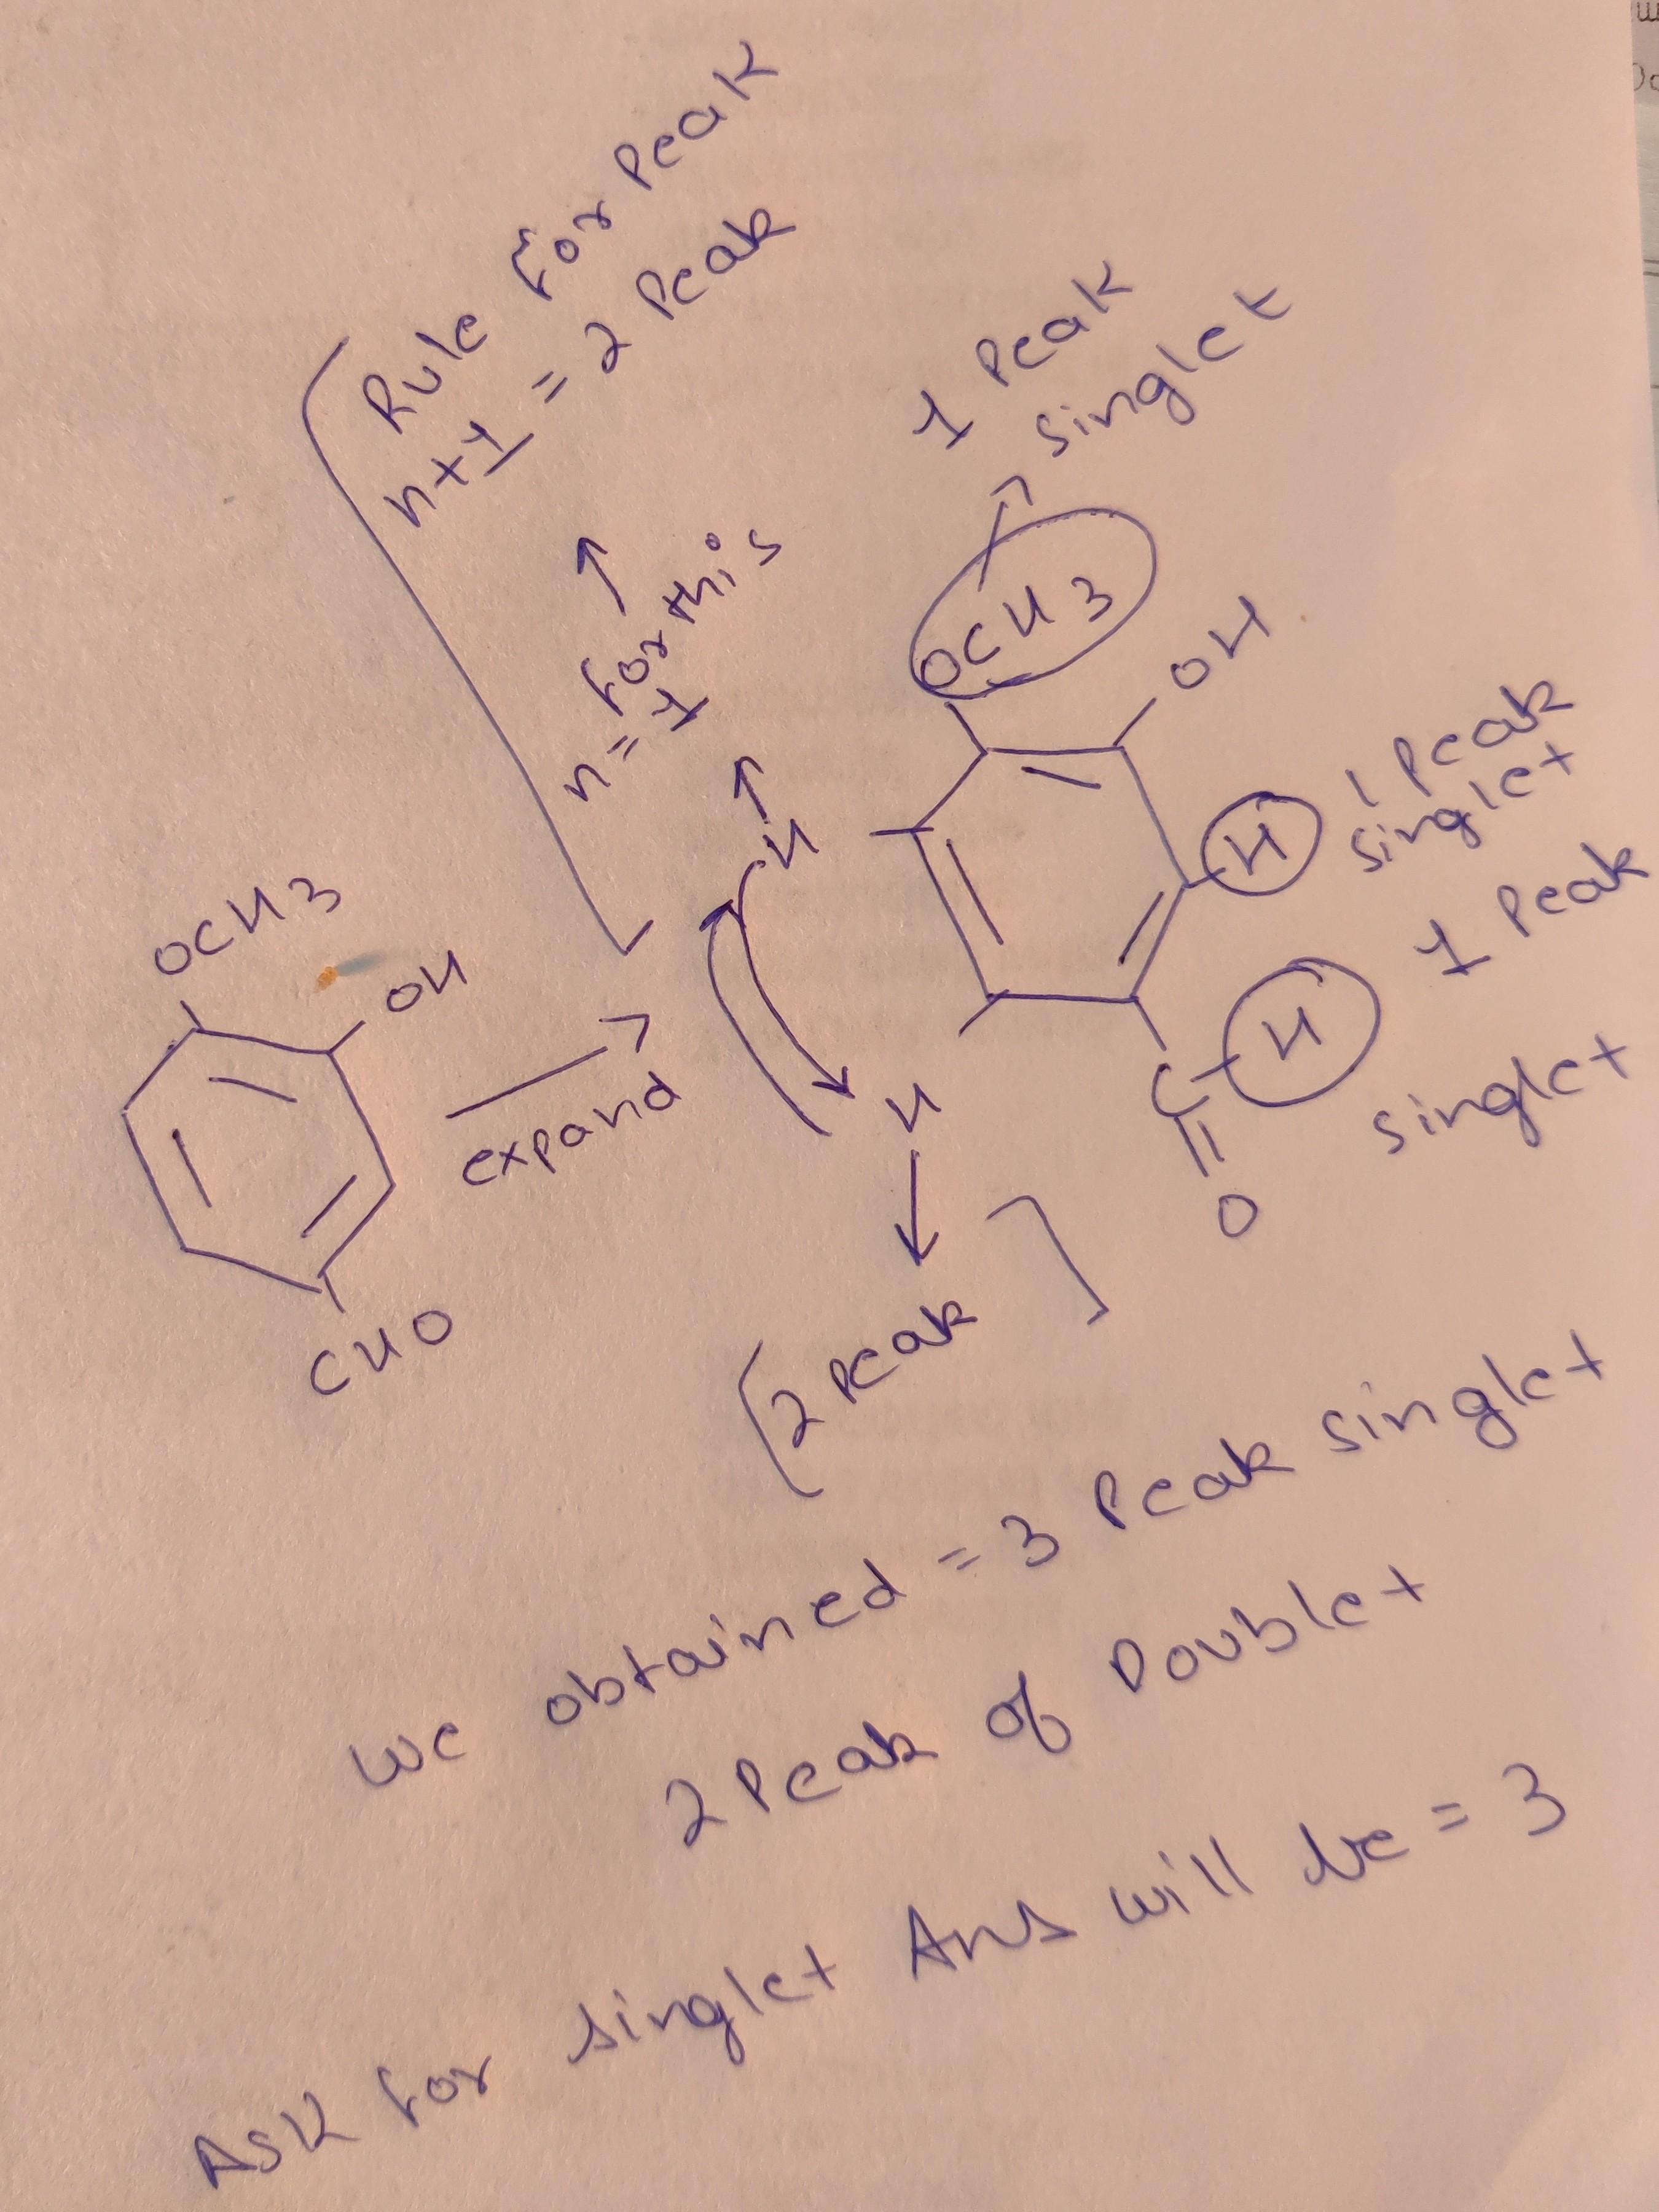 Rule for Peak
n+1 = 2 Peak
n = for this
1
H
1 Peak
singlet
OCH3
OH
H
1 Peak
singlet
H
1 Peak
singlet
C
O
H
[2 Peak]
OCH3
OH
CHO
expand
we obtained = 3 Peak singlet
2 Peak of Doublet
Ask for singlet Ans will be = 3